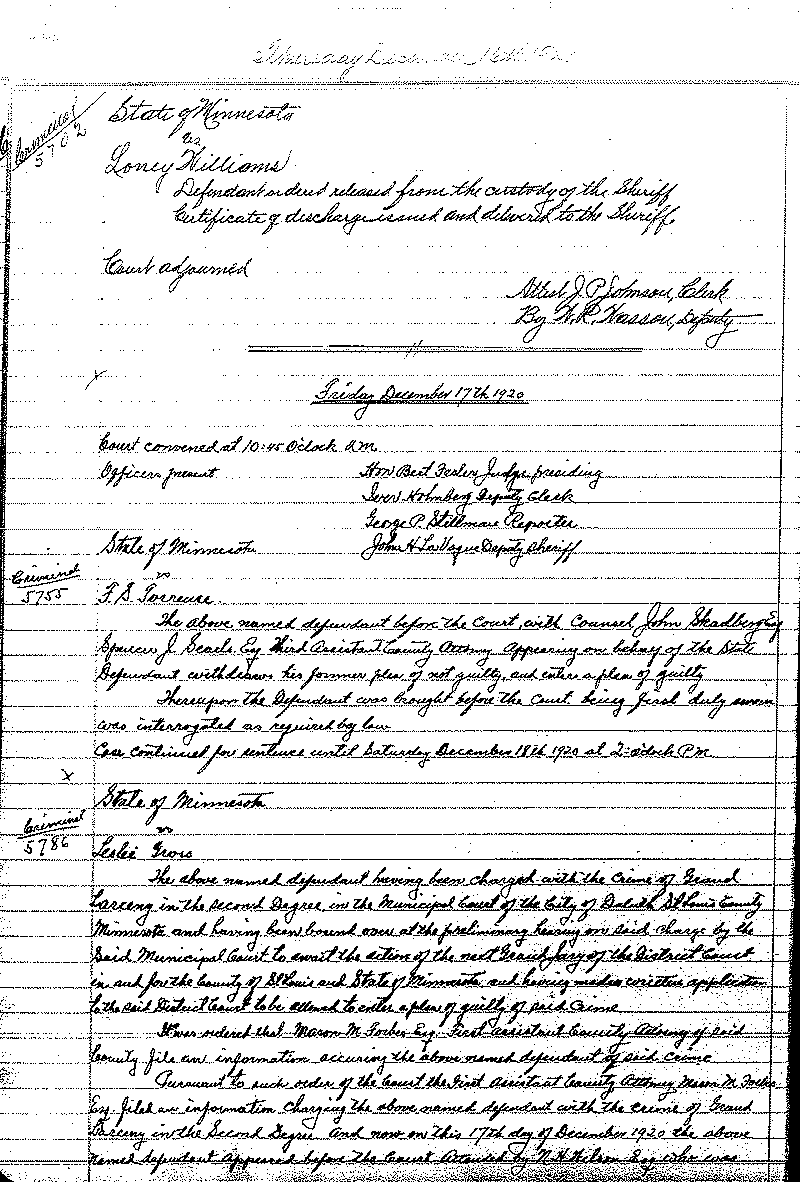 Thursday December 16th 1920
Criminal
5702
State of Minnesota
vs
Loney Williams
Defendant ordered released from the custody of the Sheriff
Certificate of discharge issued and delivered to the Sheriff.
Court adjourned
Attest J. P. Johnson, Clerk
By W. R. Wasson, Deputy
Friday December 17th 1920
Court convened at 10:45 O'clock A.M.
Officers present
Hon Bert Fesler Judge presiding
Iver Kohnberg Deputy Clerk
George P. Stillman Reporter
State of Minnesota
John H La Vaque Deputy Sheriff
Criminal
5755
vs
F. S
The above named defendant before the Court, with Counsel John Skadberg Esq
Spencer J. Searls Esq Third Assistant County Attorney Appearing on behalf of the State
Defendant withdraws his former plea of not guilty, and enters a plea of guilty
Thereupon the Defendant was brought before the Court being first duly sworn
was interrogated as required by law
Case continued for sentence until Saturday December 18th 1920 at 2 o'clock P.M.
State of Minnesota
Criminal
5786
vs
Leslie
The above named defendant having been charged with the crime of Grand
Larceny in the Second Degree, in the Municipal Court of the City of Duluth St Louis County
Minnesota and having been bound over at the preliminary hearing on said charge by the
said Municipal Court to await the action of the next Grand Jury of the District Court
in and for the County of St Louis and State of Minnesota, and having made written application
to the said District Court to be allowed to enter a plea of guilty of said crime
It was ordered that Mason M. Forbes Esq. First Assistant County Attorney of said
County file an information accusing the above named defendant of said crime
Pursuant to such order of the Court the First Assistant County Attorney Mason M. Forbes
Esq. filed an information charging the above named defendant with the crime of Grand
Larceny in the Second Degree And now on this 17th day of December 1920 the above
named defendant appeared before the Court Attended by N. H. Wilson Esq who was